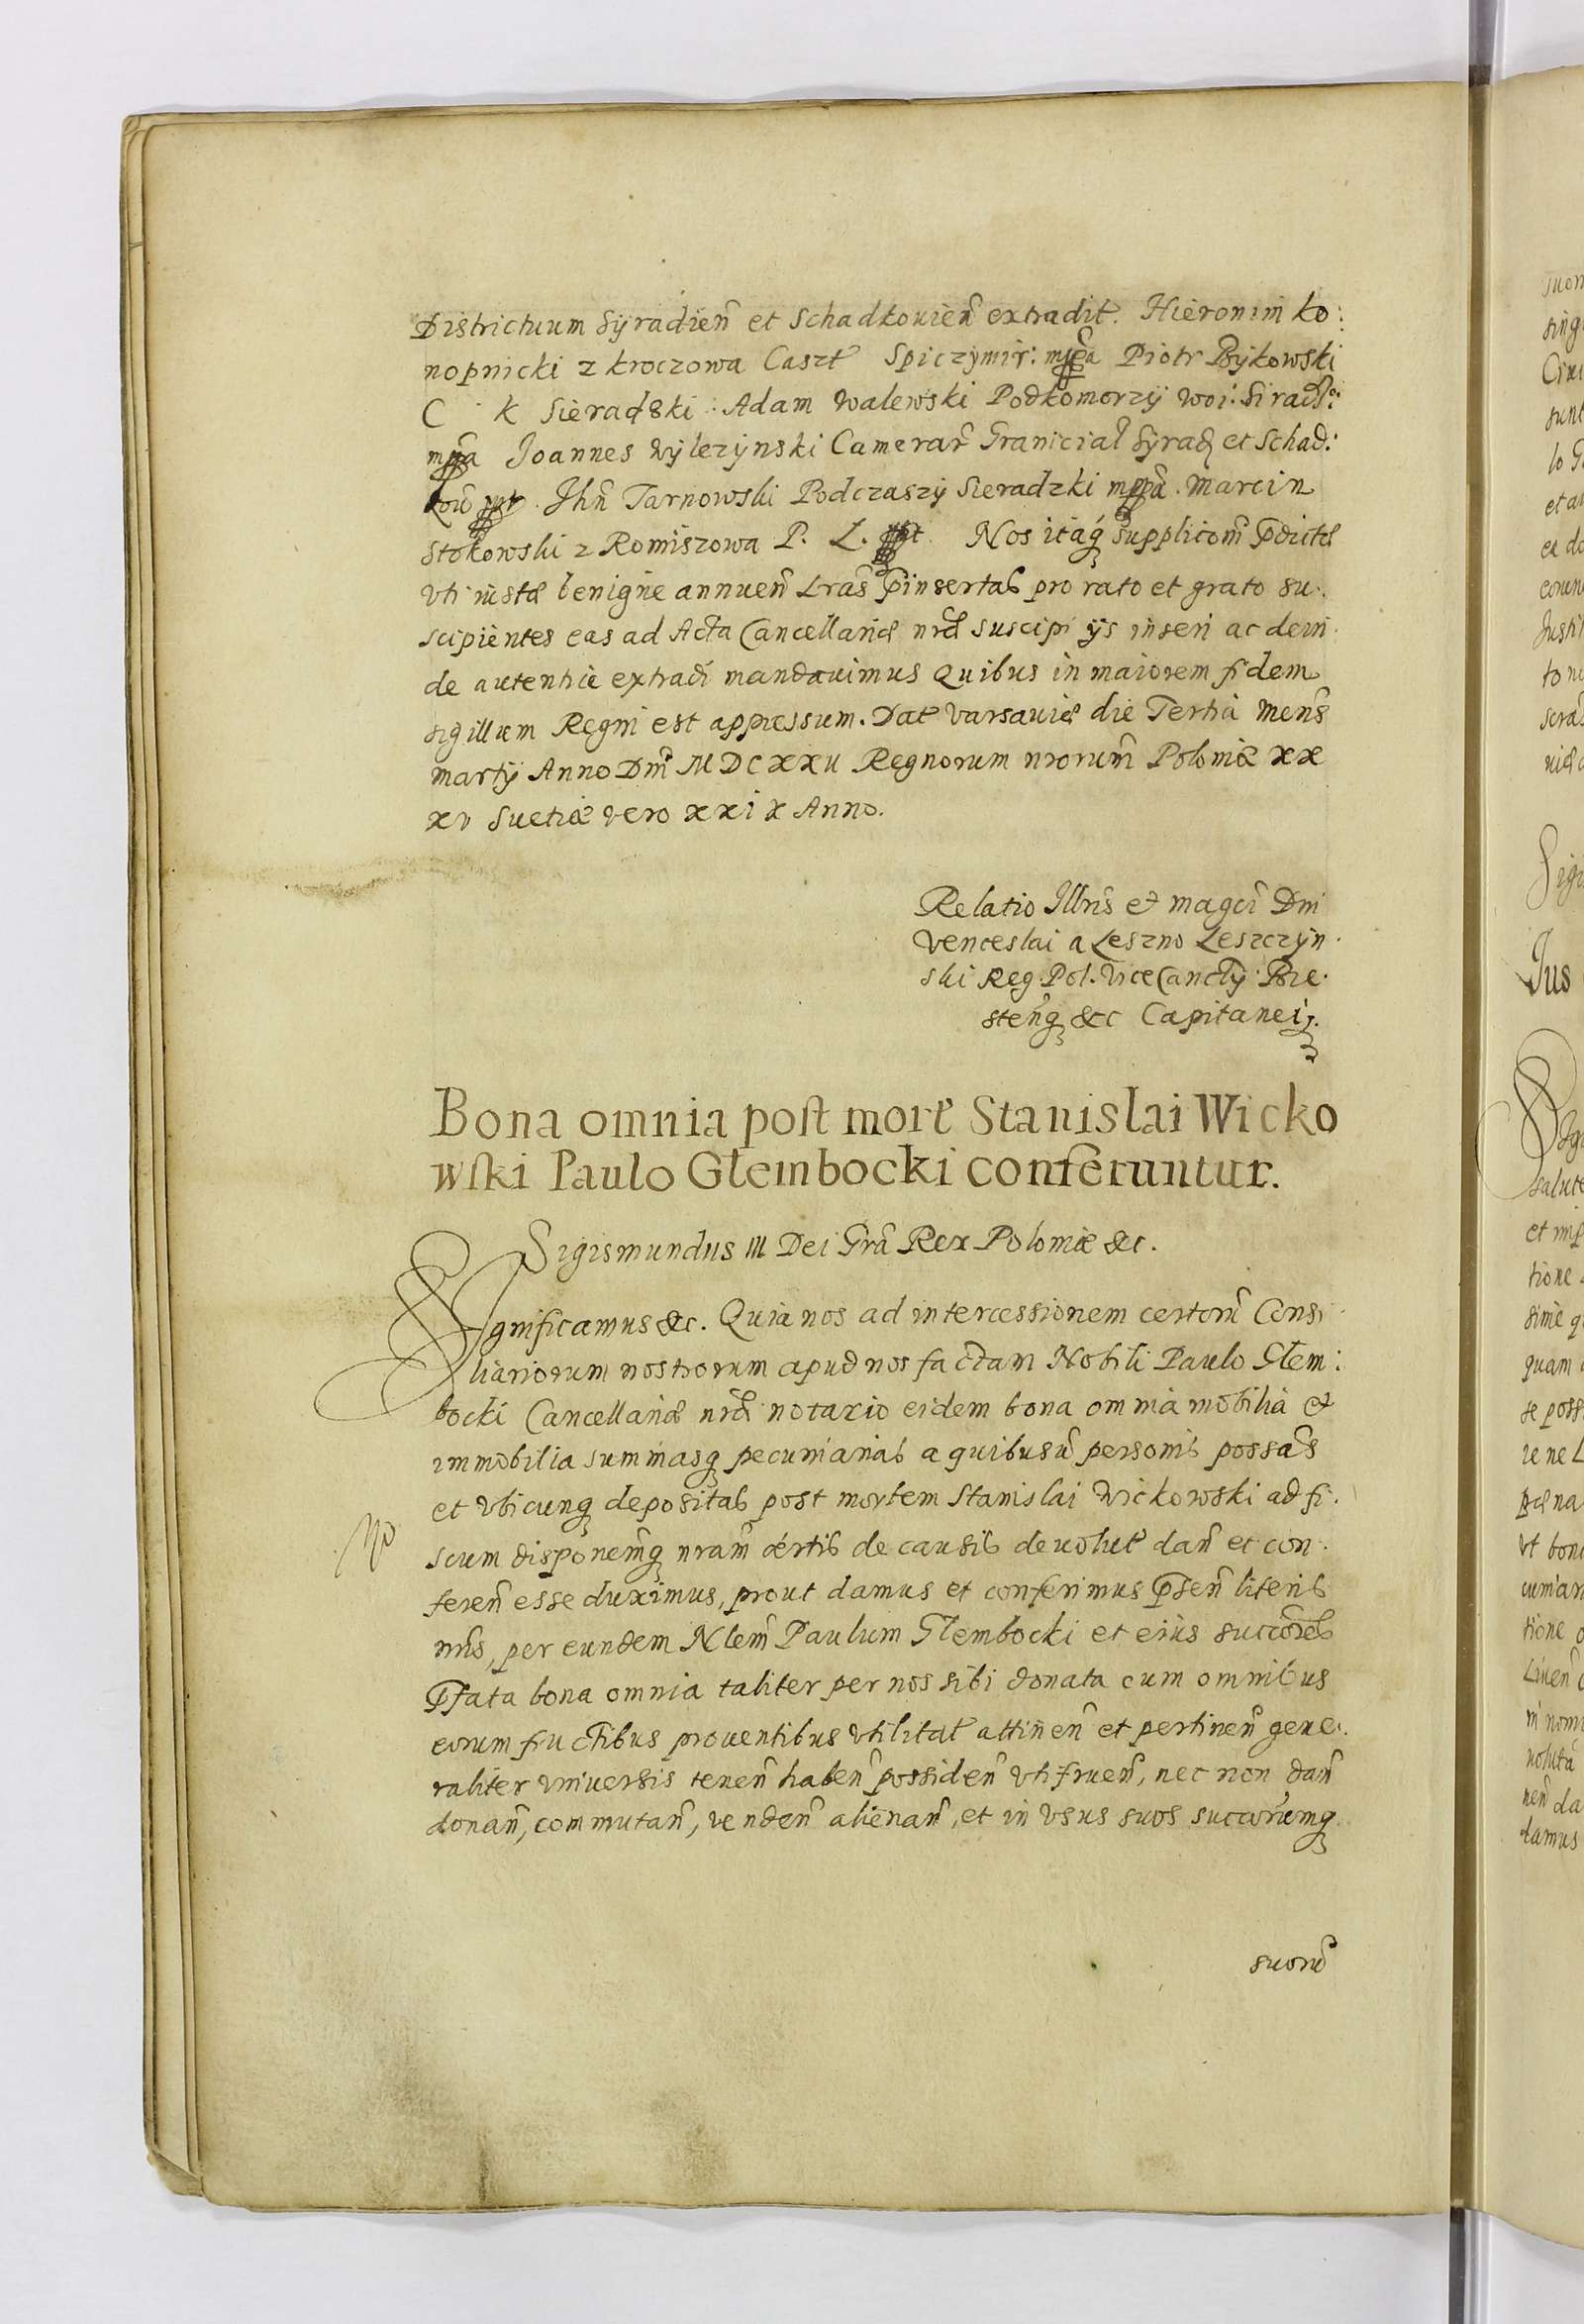 Districtuum Syradien̄ et Schadkovien̄ extradit. Hieronim Ko:
nopnicki z Kroczowa Caszt Spiczymir: mppa Piotr Bykowski
C K Sieradski. Adam Walewski Podkomorzy Woi: Sirads:
mppa Joannes Wylezynski Camerar̄ Granicial Syrad et Schad:
kow̄ Jhn̄ Tarnowski Podczaszy Sieradzki mppa. Marcin
Stokowski z Romiszowa P. L. Nos itaq supplicom̄ p̄dictæ
vti iustæ benigne annuen̄ Lr̄as p̄insertas pro rato et grato su.
scipientes eas ad Acta Cancellariæ nr̄æ suscipi ijs inseri ac dein.
de autentice extradi mandavimus Quibus in maiorem fidem
sigillum Regni est appressum. Dat Varsaviæ die Tertia Mens̄
Martij Anno Dn̄i MDCXXV Regnorum nr̄orum̄ Poloniæ XX
XV Suetiæ vero XXIX Anno.
Relatio Illr̄is et magc̄i Dn̄i
Venceslai a Leszno Leszczyn.
ski Reg. Pol. ViceCancl̄ij. Brze.
sten̄q &c Capitanei.
Bona omnia post morte Stanislai Wicko
wski Paulo Glembocki conferuntur.
Sigismundus III Dei Gr̄a Rex Poloniæ &c.
Significamus &c. Quia nos ad intercessionem certoru Consi
liariorum nostrorum apud nos factam Nobili Paulo Glem:
bocki Cancellariæ nr̄æ notario eidem bona omnia mobilia et
immobilia summasq pecuniarias a quibusu personis possas̄
et vbicunq depositas post mortem Stanislai Wickowski ad fi.
No
scum disponem̄q nr̄am certis de causis devolut dan̄ et con.
feren̄ esse duximus, prout damus et conferimus p̄sen̄ literis
nr̄is, per eundem Nlem̄ Paulum Glembocki et eius succōres
p̄fata bona omnia taliter per nos sibi donata cum omnibus
eorum fructibus proventibus vtilitat attinen̄ et pertinen̄ gene.
raliter vniversis tenen̄ haben̄ possiden̄ vti fruen̄, nec non dan̄
donan̄, commutan̄, venden̄ alienan̄, et in vsus suos succorumq
suoru